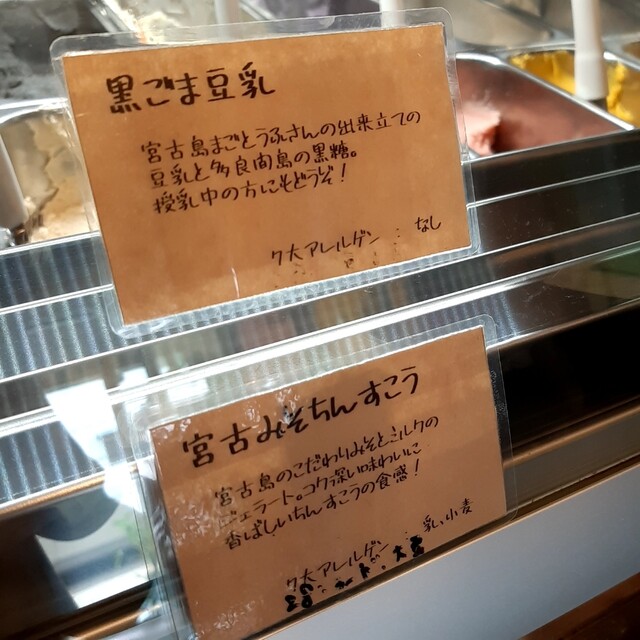 黒ごま豆乳
宮古島まごとうふさんの出来立ての
豆乳と多良間島の黒糖。
授乳中の方にもどうぞ！
7大アレルゲン：なし
宮古みそちんすこう
宮古島のこだわりみそとミルクの
ジェラート。コク深い味わいに
香ばしいちんすこうの食感！
7大アレルゲン：乳、小麦